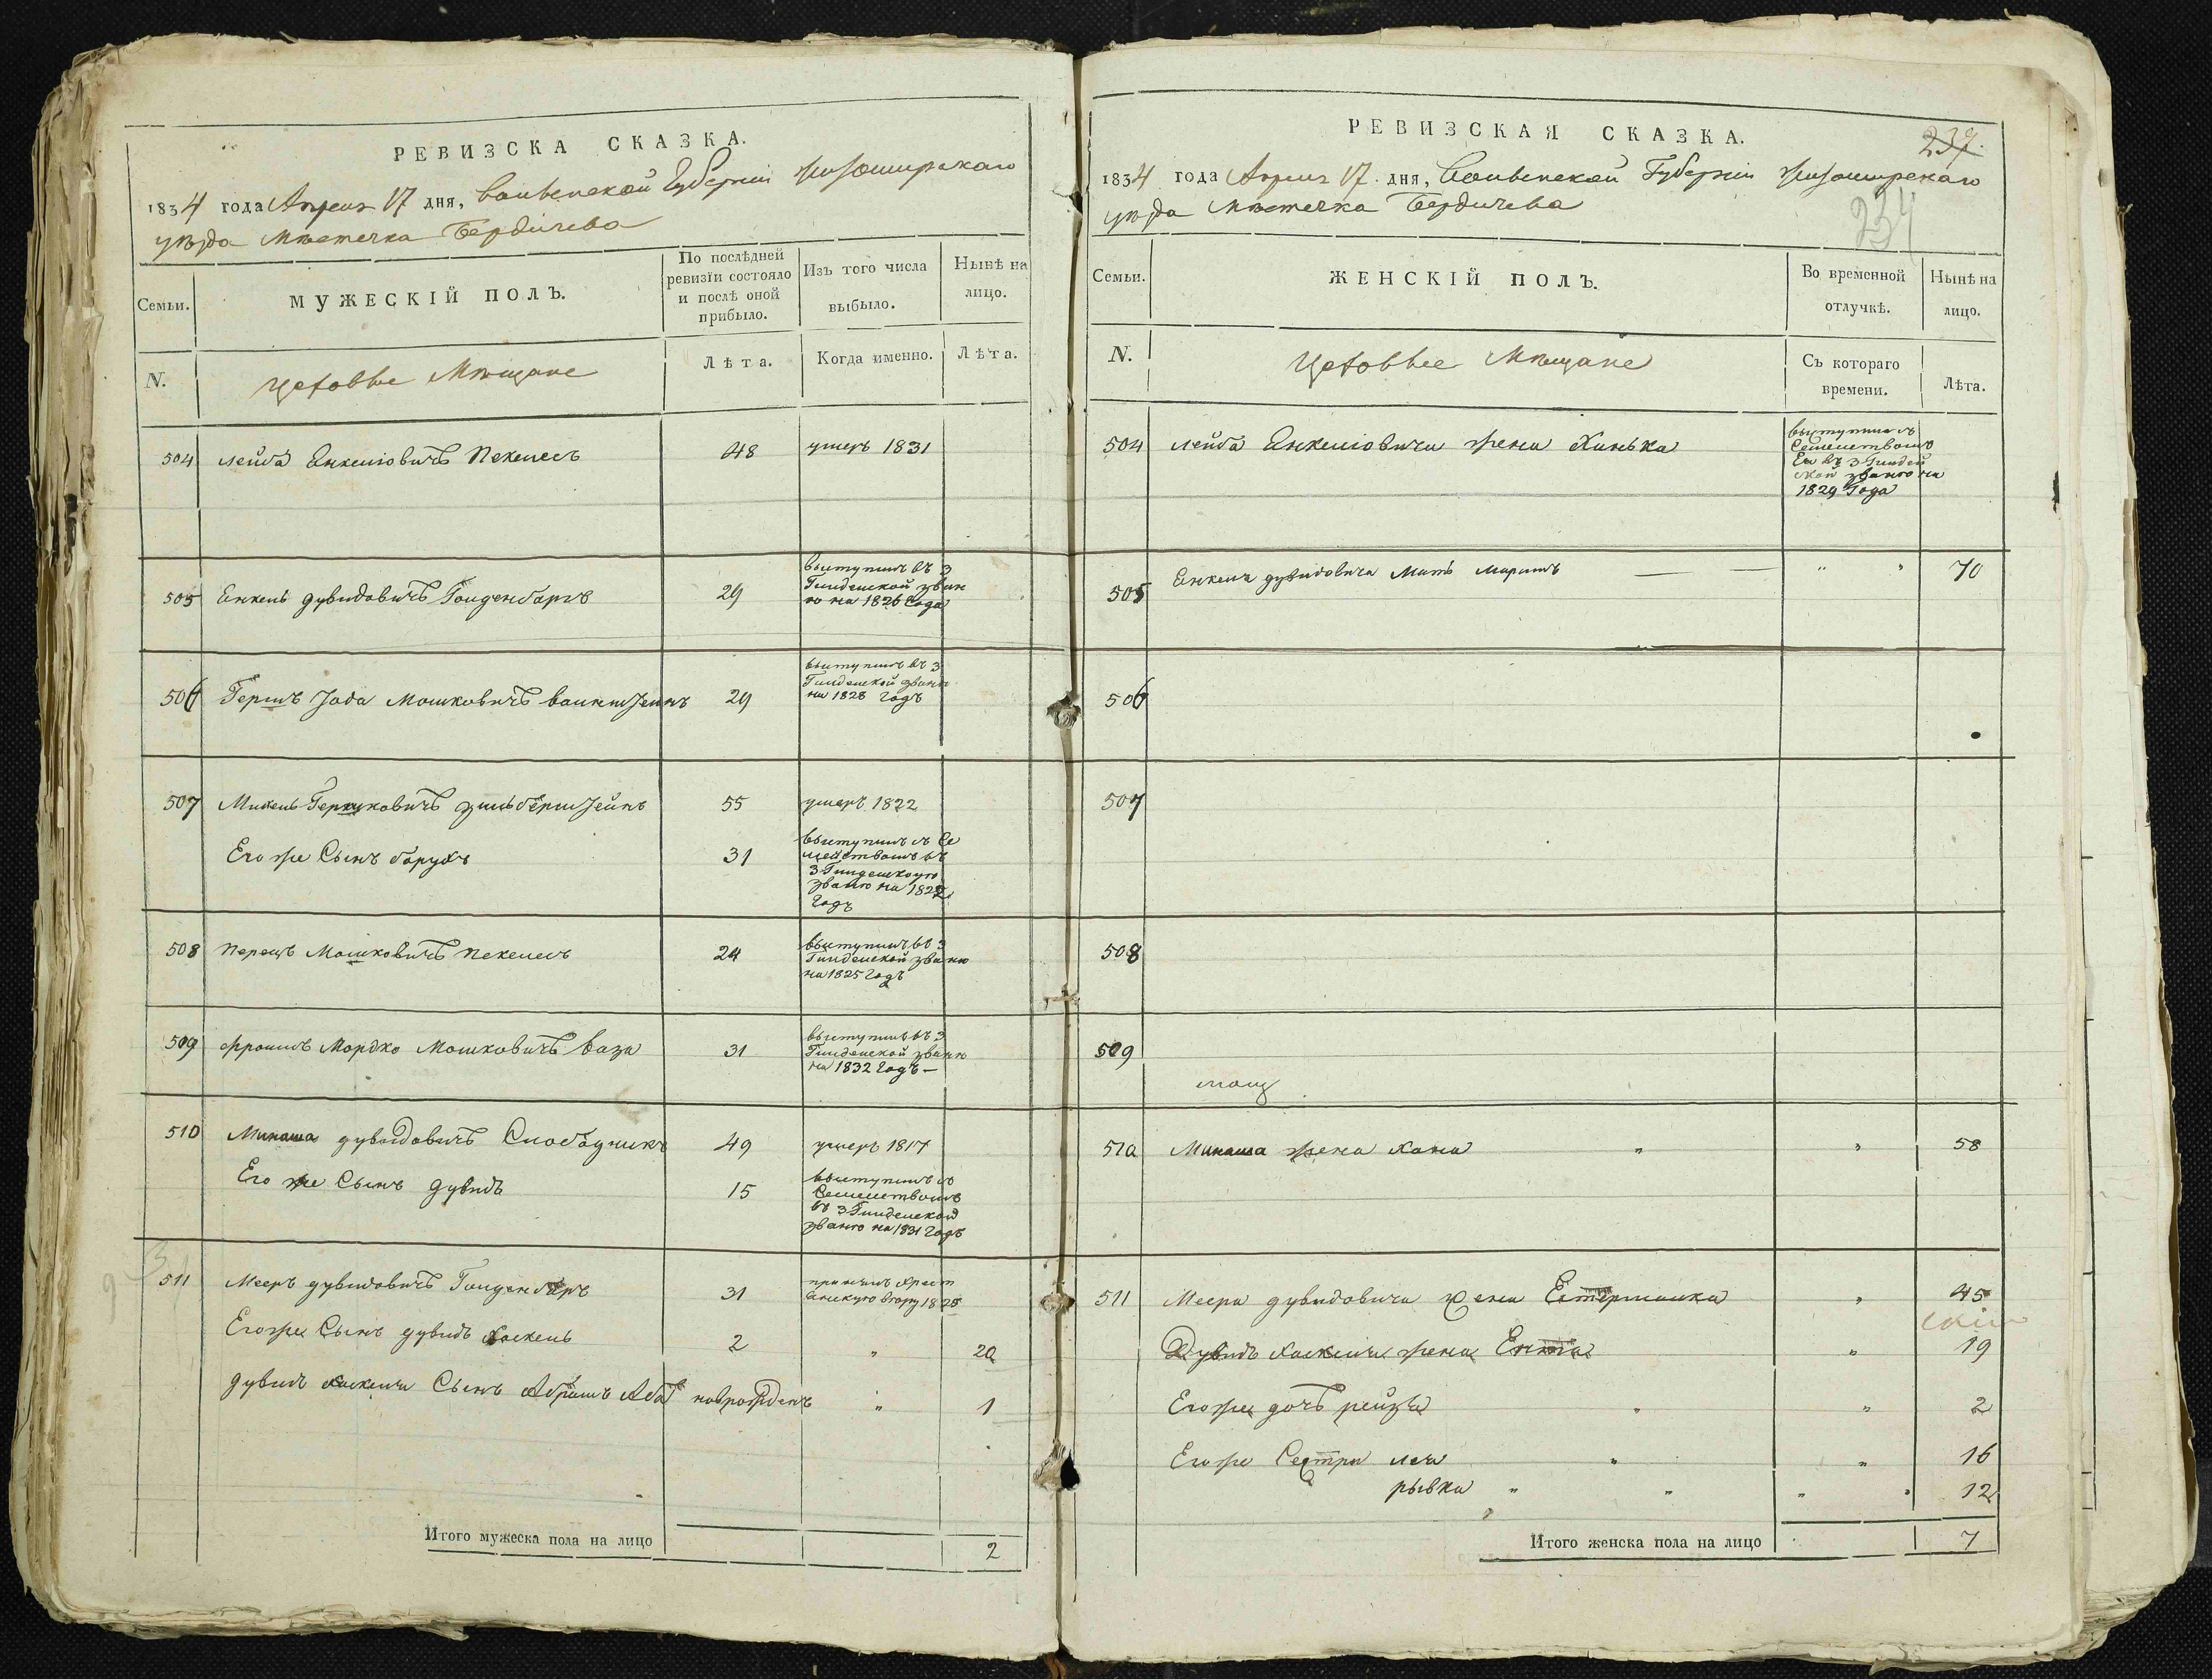 РЕВИЗСКА СКАЗКА.
1834 года Апреля 17 дня, Волынской Губернiи Житомирскаго
уѣзда Мѣстечка Бердичева
Семьи.
МУЖЕСКIЙ ПОЛЪ.
По послѣдней
ревизiи состояло
и послѣ оной
прибыло.
Изъ того числа
выбыло.
Нынѣ на
лицо.
N.
Цеховые Мѣщане
Лѣта.
Когда именно.
Лѣта.
504 Лейба Енкелiовичъ Пекелесъ 48 умеръ 1831
505 Енкель дувидовичъ Голденбаргъ 29
выступилъ въ 3
Гилдейской зван
ю на 1826 Года
506 Гершъ Мошковичъ 29
выступилъ въ 3
Гилдейской званю
на 1828 Годъ
507 Михель Гершковичъ 55 умеръ 1822
Его же Сынъ борухъ 31
выступилъ съ Се
мействомъ въ
3 Гилдейскую
званю на 1822
Годъ
508 Перецъ Мошковичъ Пекелесъ 24
выступилъ въ 3
Гилдейской званю
на 1825 Годъ
509 Мордко Мошковичъ 31
выступилъ въ 3
Гилдейской званю
на 1832 Годъ —
510 Минаша дувидовичъ Слободникъ 49 умеръ 1817
Его же Сынъ дувидъ 15
выступилъ съ
Семействомъ
въ 3 Гилдейской
званю на 1831 Годъ
511 Мееръ дувидовичъ 31
1825
Его же Сынъ дувидъ Хаскель 2 " 20
дувидъ Хаскеля Сынъ Абрамъ Аба новрожденъ " 1
Итого мужеска пола на лицо 2
РЕВИЗСКАЯ СКАЗКА.
239.
1834 года Апреля 17 дня, Волынской Губернiи Житомирскаго
уѣзда Мѣстечка Бердичева
234
Семьи.
ЖЕНСКIЙ ПОЛЪ.
Во временной
отлучкѣ.
Нынѣ на
лицо.
N.
Цеховые Мѣщане
Съ котораго
времени.
Лѣта.
504 Лейба Енкелiовича жена Хинька
выступила съ
Семействомъ
Ея въ 3 Гилдей
ской званю на
1829 Года
505 Енкеля дувидовича Мать " " 70
506
507
508
509
510 Минаша жена Хана " " 58
511 Меера дувидовича жена " 45
Дувидъ Хаскеля жена Ента " 19
Его же дочь рейза " " 2
Его же Сестры леа " " 16
рывка " " " " 12
Итого женска пола на лицо 7